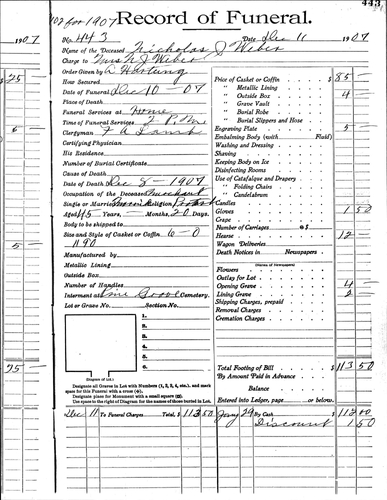 443
107 for 1907 Record of Funeral.
1907
No. 443 Date Dec 11 1907
Name of the Deceased Nicholas J Weber
Charge to Mrs N J Weber
Order Given by A Hartung
Date of Funeral Dec 10 - 07
Place of Death
Funeral Services at Home
Time of Funeral Services 2 P.M.
Clergyman F A Lamb
Certifying Physician
His Residence
Number of Burial Certificate
Cause of Death
Date of Death Dec 8 - 1907
Occupation of the Deceased Merchant
Single or Married Married Religion
Aged 45 Years, — Months, 20 Days.
Body to be shipped to
Size and Style of Casket or Coffin 6-0
1190
Manufactured by
Metallic Lining
Outside Box
Number of Handles
Interment at Pine Grove Cemetery.
Lot or Grave No. Section No.
1.
2.
3.
4.
5.
6.
(Diagram of Lot.)
Designate all Graves in Lot with Numbers (1, 2, 3, 4, etc.), and mark
space for this Funeral with a cross (+).
Designate place for Monument with a small square (□).
Use space to the right of Diagram for the names of those buried in Lot.
Price of Casket or Coffin $ 85 —
" Metallic Lining
" Outside Box 4 —
" Grave Vault
" Burial Robe
" Burial Slippers and Hose
Engraving Plate 5 —
Embalming Body (with Fluid)
Washing and Dressing
Shaving
Keeping Body on Ice
Disinfecting Rooms
Use of Catafalque and Drapery
" Folding Chairs
" Candelabrum
Candles
Gloves 1 50
Crape
Number of Carriages @ $
Hearse 12 —
Wagon Deliveries
Death Notices in Newspapers
(Names of Newspapers)
Flowers
Outlay for Lot
Opening Grave 4 —
Lining Grave 2 —
Shipping Charges, prepaid
Removal Charges
Cremation Charges
Total Footing of Bill $ 113 50
By Amount Paid in Advance
Balance
Entered into Ledger, page or below.
Dec 11 To Funeral Charges Total, $ 113 50 Jany 29 By Cash $ 112 00
Discount 1 50
25 —
6 —
5 —
25 —